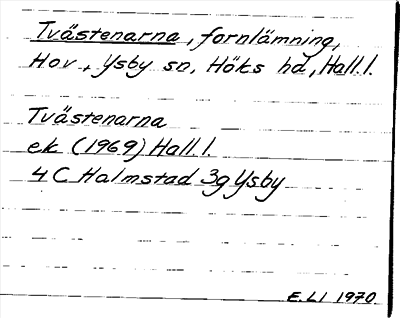 Tvästenarna, fornlämning,
Hov, Ysby sn, Höks hd, Hall. l.
Tvästenarna
ek (1969) Hall. l.
4 C Halmstad 3g Ysby
E. LI 1970